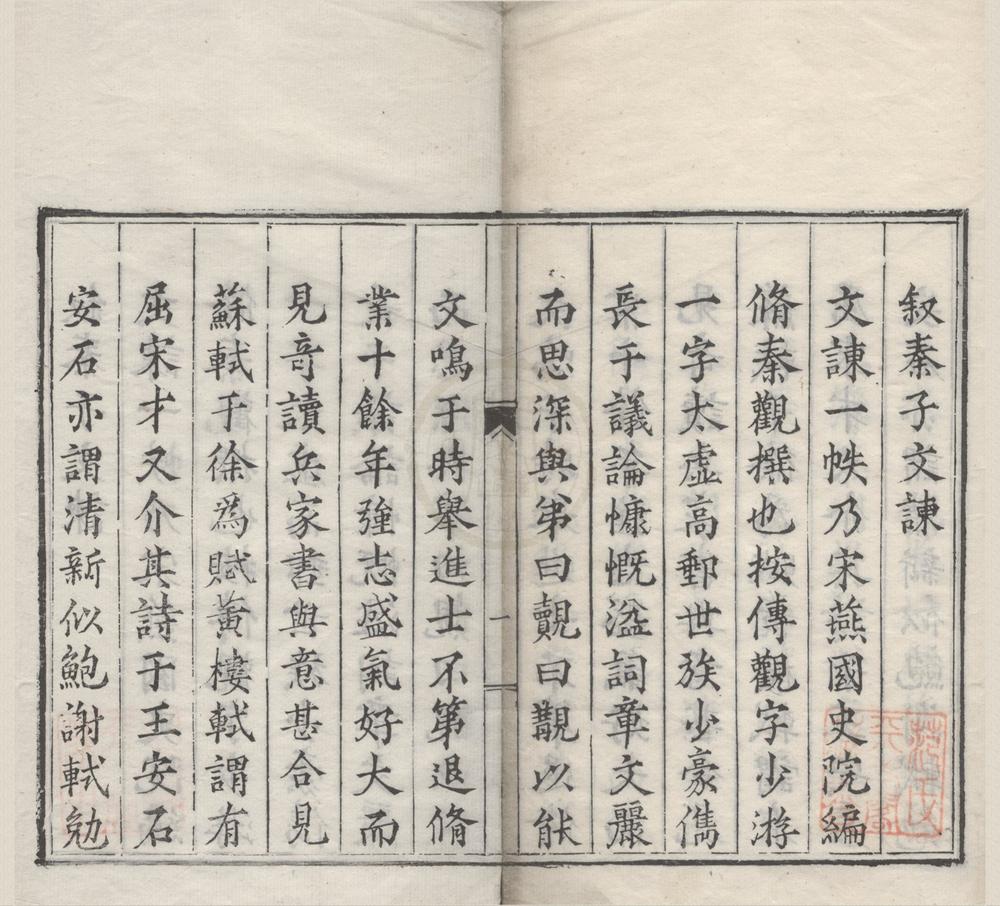 叙秦子文諫
文諫一帙乃宋燕國史院編
脩秦觀撰也按傳觀字少游
一字太虛高郵世族少豪儁
長于議論慷慨溢詞章文麗
而思深與弟曰覿曰覯以能
文鳴于時舉進士不第退脩
業十餘年强志盛氣好大而
見奇讀兵家書與意甚合見
蘇軾于徐為賦黃樓軾謂有
屈宋才又介其詩于王安石
安石亦謂清新似鮑謝軾勉
一